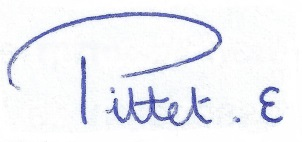 Pittet. E